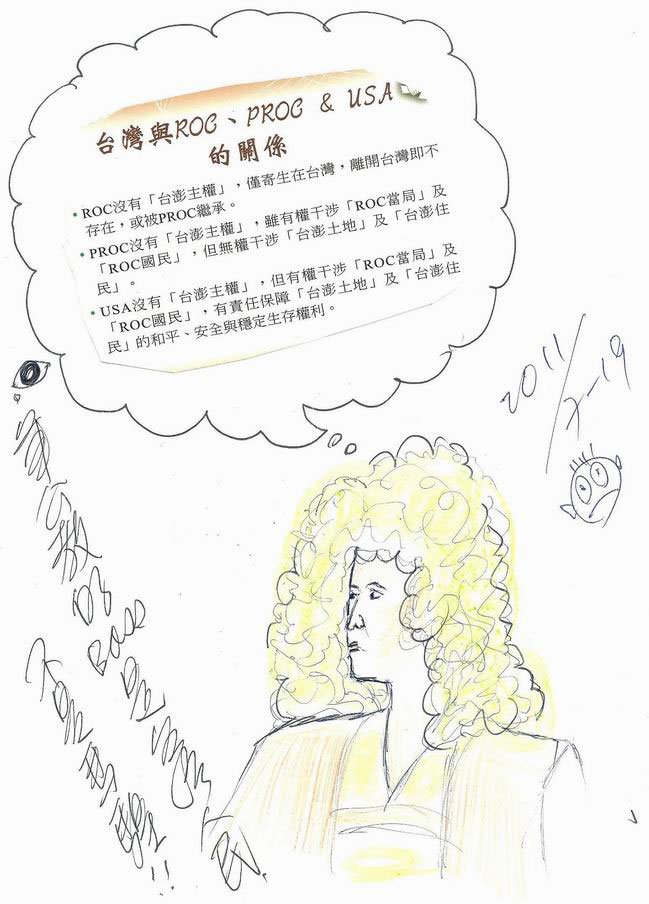 台灣與ROC、PROC & USA
的關係
• ROC沒有「台澎主權」，僅寄生在台灣，離開台灣即不
存在，或被PROC繼承。
• PROC沒有「台澎主權」，雖有權干涉「ROC當局」及
「ROC國民」，但無權干涉「台澎土地」及「台澎住
民」。
• USA沒有「台澎主權」，但有權干涉「ROC當局」及
「ROC國民」，有責任保障「台澎土地」及「台澎住
民」的和平、安全與穩定生存權利。
2011/7-19
軍公教的BOSS是台灣人民
不是馬!!